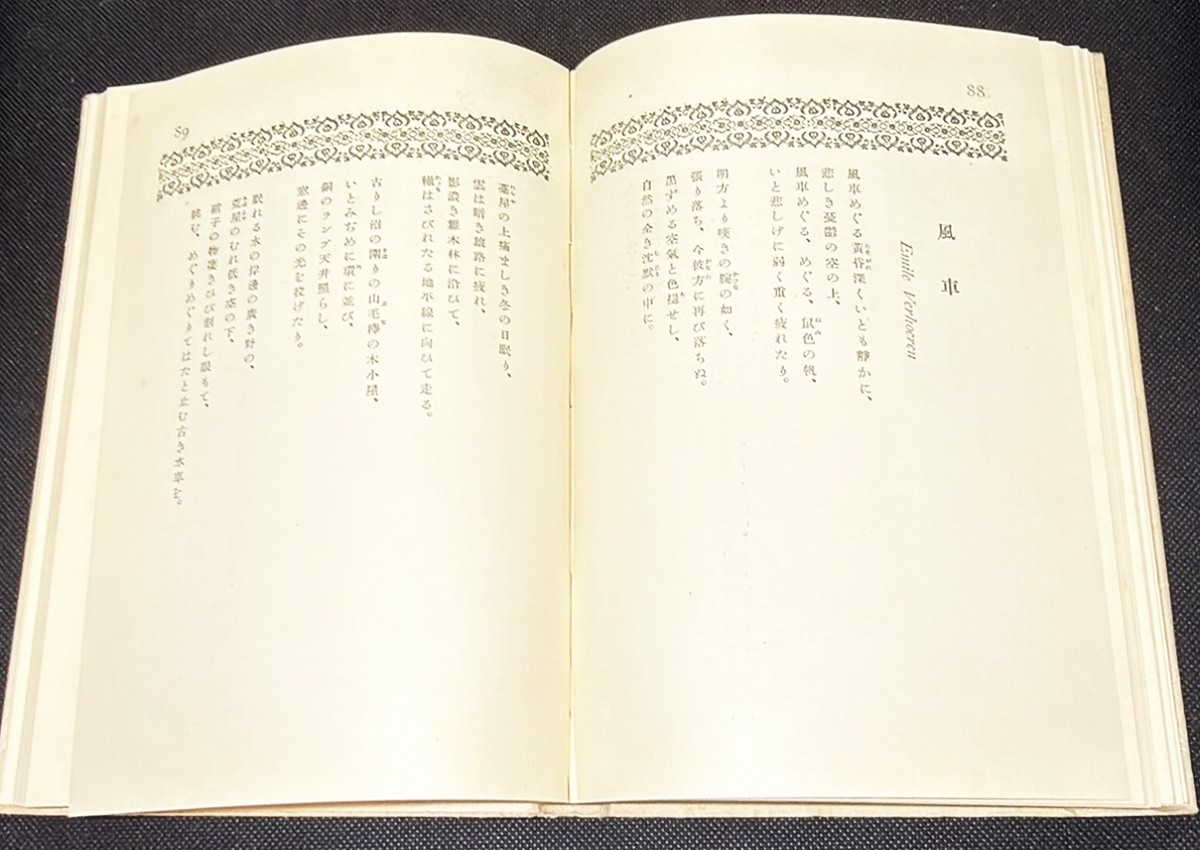 88
風車
Emile Verhoeren
風車めぐる黄昏深くいとも靜かに、
悲しき憂鬱の空の上、
風車めぐる、めぐる、鼠色の帆、
いと悲しげに弱く重く疲れたり。
明方より嘆きの腕の如く、
張り落ち、今彼方に再び落ちぬ。
黒ずめる空氣と色褪せし、
自然の全き沈默の中に。
89
藁屋の上痛ましき冬の日眠り、
雲は暗き旅路に疲れ、
影濃き雜木林に沿ひて、
轍はさびれたる地平線に向ひて走る。
古りし沼の閑りの山毛欅の木小屋、
いとみじめに環に並び、
銅のランプ天井照らし、
窓邊にその光を投げたり。
眠れる水の岸邊の廣き野の、
荒屋のむれ低き空の下、
硝子の物凄きひび割れし眼もて、
眺む、めぐりめぐりてはたと止む古き水車を。